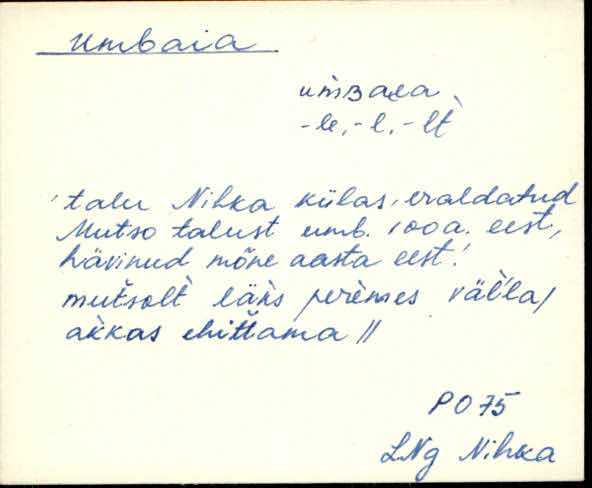 Umbaia
umbaea
-le, -l, -lt
'talu Nihka külas, eraldatud
Mutso talust umb. 100 a. eest,
hävinud mõne aasta eest.'
mutsolt läks peremes välla/
akkas ehittama //
PO 75
LNg Nihka